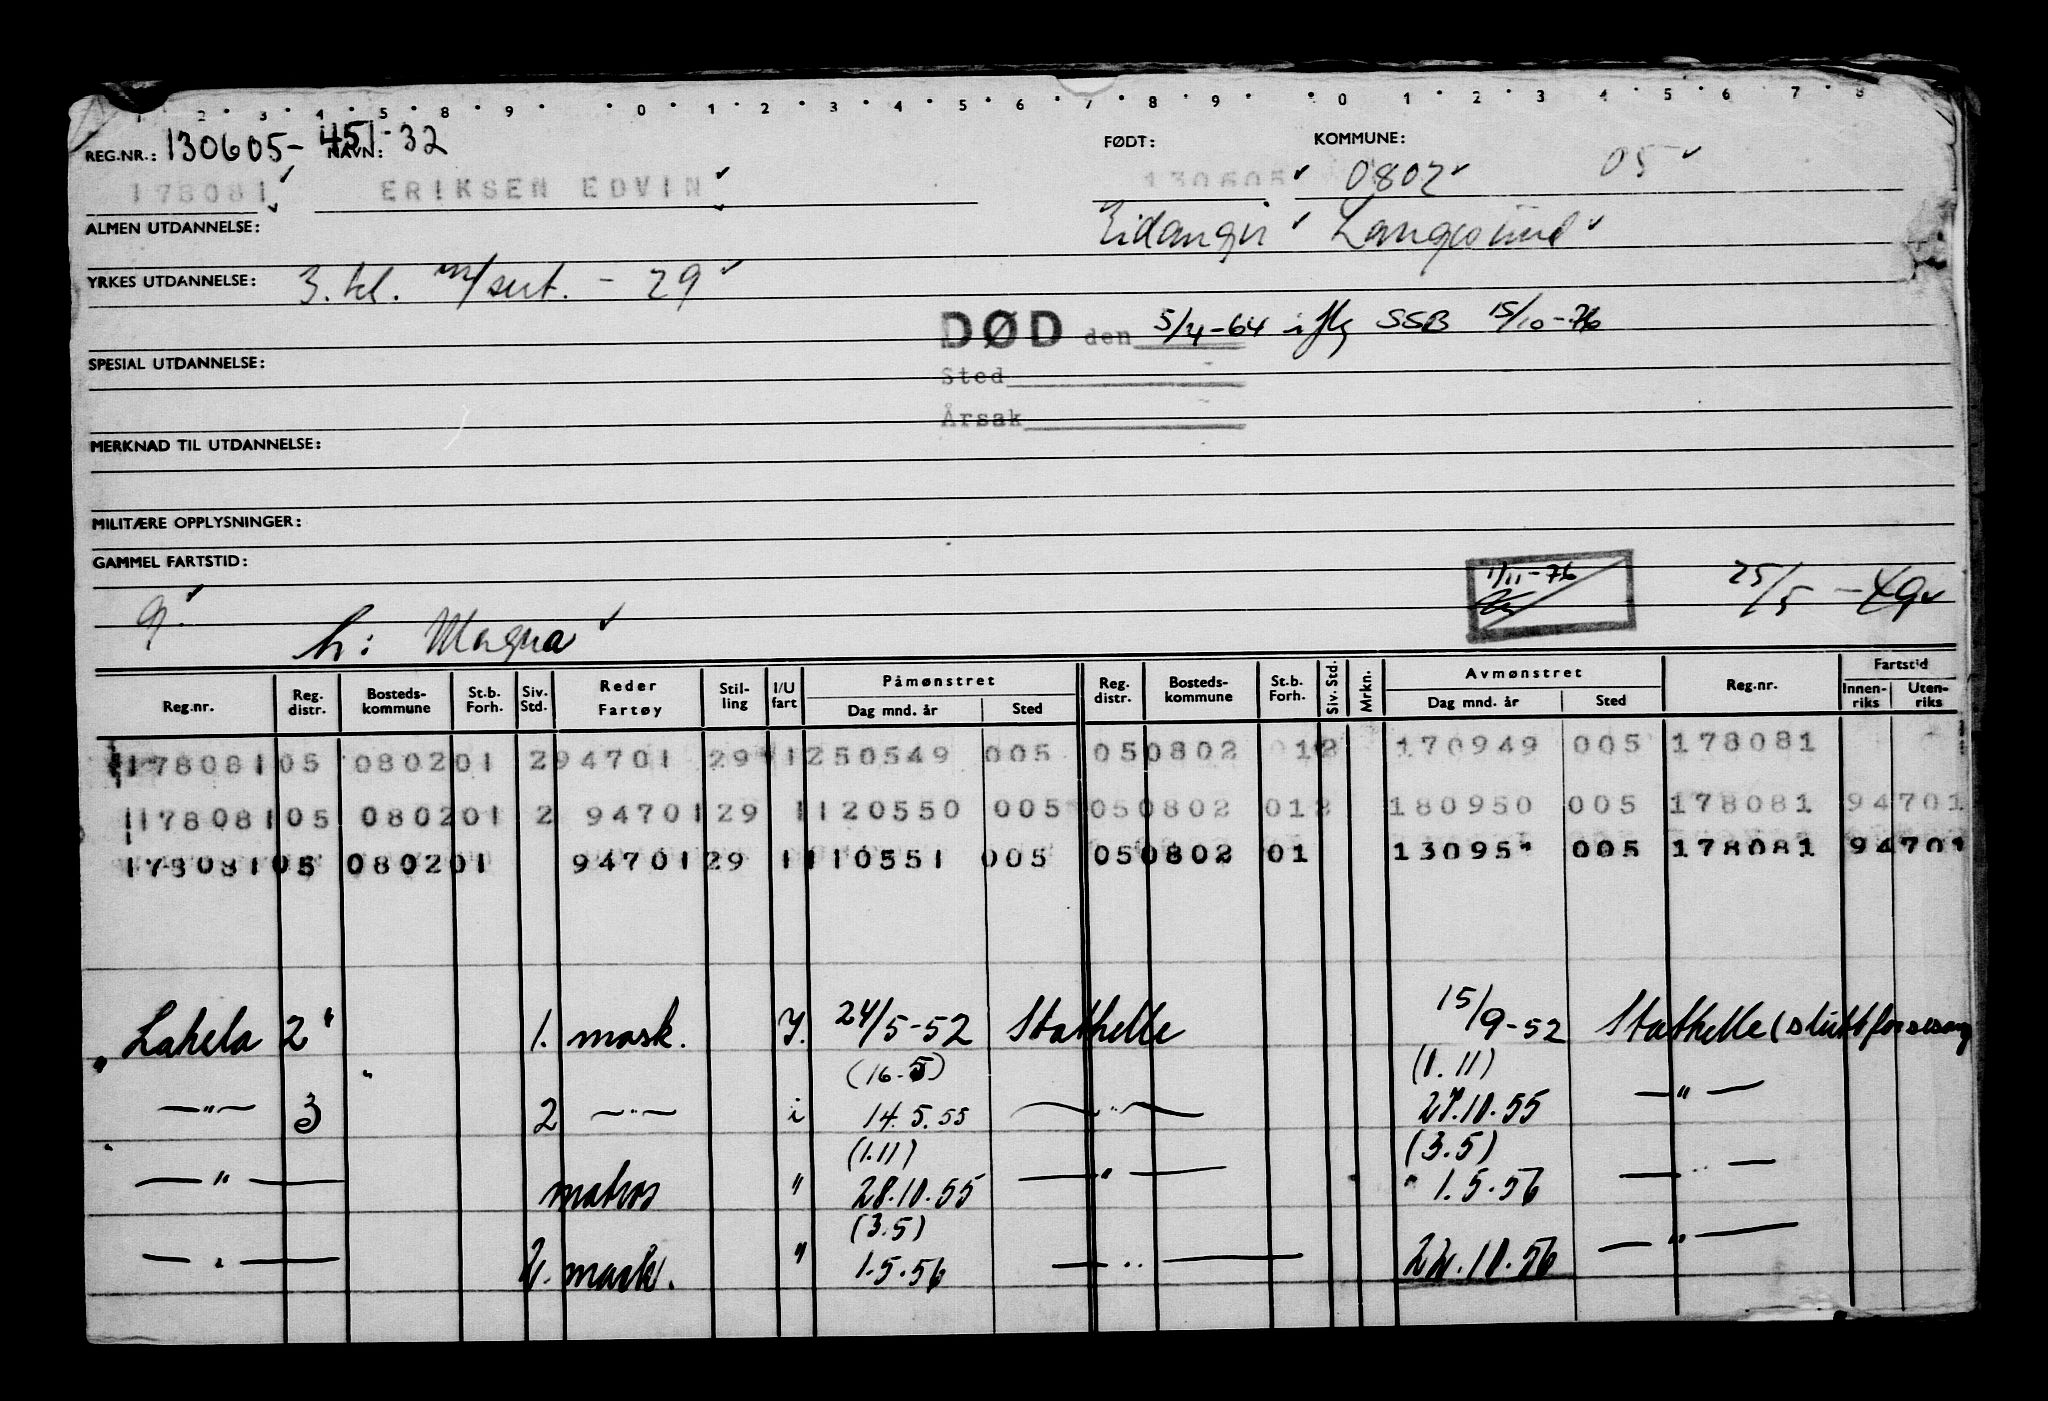 1 · 2 · 3 · 4 · 5 · 8 · 9 · · 0 · 1 · 2 · 3 · 4 · 5 · 6 · 7 · 8 · 9 · · 0 · 1 · 2 · 3 · 4 · 5 · 6 · 7 · 8
REG.NR.: 130605-451-32 NAVN: FØDT: KOMMUNE:
178081 ERIKSEN EDVIN 130605 0802 05
ALMEN UTDANNELSE: Eidanger Langesund
YRKES UTDANNELSE: 3. kl. m/sert. - 29
DØD den 5/4-64 iflg SSB 15/10-76
SPESIAL UTDANNELSE: Sted
Årsak
MERKNAD TIL UTDANNELSE:
MILITÆRE OPPLYSNINGER:
GAMMEL FARTSTID:
g. h: Magna 1/11-76 25/5-49
Reg.nr. Reg. distr. Bosteds-kommune St.b. Forh. Siv. Std. Reder Fartøy Stil-ling I/U fart Påmønstret Dag mnd. år Sted Reg. distr. Bosteds-kommune St.b. Forh. Siv. Std. Mrkn. Avmønstret Dag mnd. år Sted Reg.nr. Fartstid Innen-riks Uten-riks
178081 05 0802 01 2 94701 29 1 250549 005 05 0802 01 2 170949 005 178081
178081 05 0802 01 2 94701 29 1 120550 005 05 0802 01 2 180950 005 178081 94701
178081 05 0802 01 94701 29 1 110551 005 05 0802 01 13095 005 178081 94701
"Lakela 2" 1. mask. I. 24/5-52 Stathelle 15/9-52 Stathelle (slutt for sesong
(16.5) (1.11)
—"— 3" 2 —"— i 14.5.55 —"— 27.10.55 —"—
(1.11) (3.5)
—"— matros " 28.10.55 —"— 1.5.56 —"—
(3.5)
—"— 2. mask. " 1.5.56 —"— 22.10.56 —"—